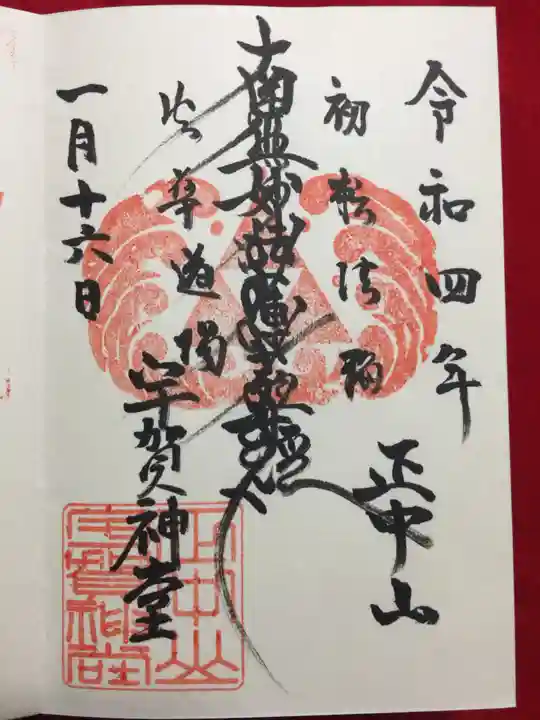 令和四年
正中山
初轉法輪
南無妙法蓮華経
法華道場
宇賀神堂
一月十六日
正中山